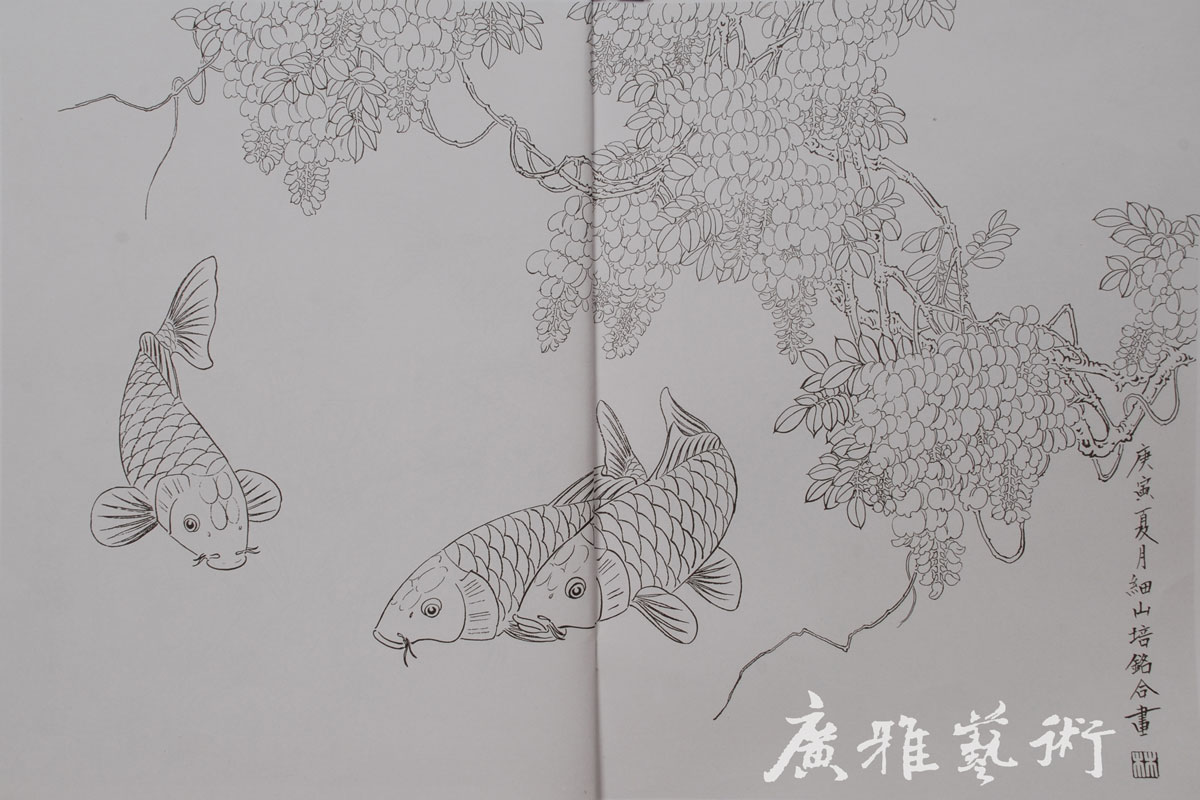 庚寅夏月細山培銘合畫
林
廣雅藝術